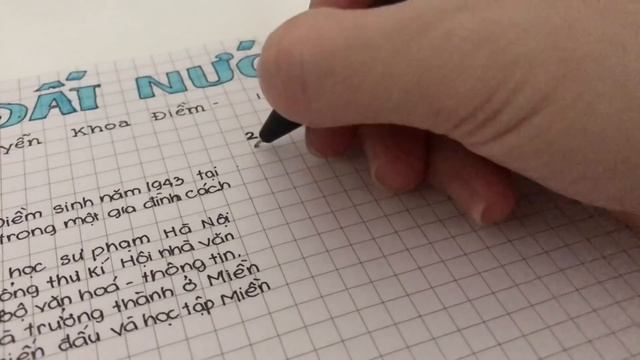 ĐẤT NƯỚ
yễn Khoa Điềm -
2
Điềm sinh năm 1943 tại
trong một gia đình cách
học sư phạm Hà Nội
ông thư kí Hội nhà văn
bộ văn hoá - thông tin.
à trưởng thành ở Miền
iến đấu và học tập Miền